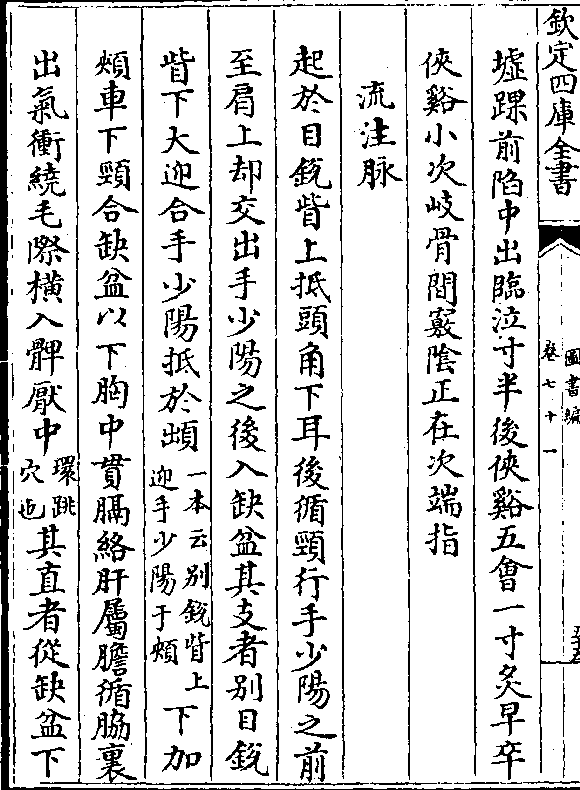 欽定四庫全書
圖書編
卷七十一
墟踝前陷中出臨泣寸半後俠谿五會一寸灸早卒
俠谿小次岐骨間竅陰正在次端指
流注脉
起於目銳眥上抵頭角下耳後循頸行手少陽之前
至肩上却交出手少陽之後入缺盆其支者别目銳
眥下大迎合手少陽抵於䪼一本云别銳眥上迎手少陽于頰下加
頰車下頸合缺盆以下胸中貫膈絡肝屬膽循脇裏
出氣衝繞毛際横入髀厭中環跳穴也其直者從缺盆下